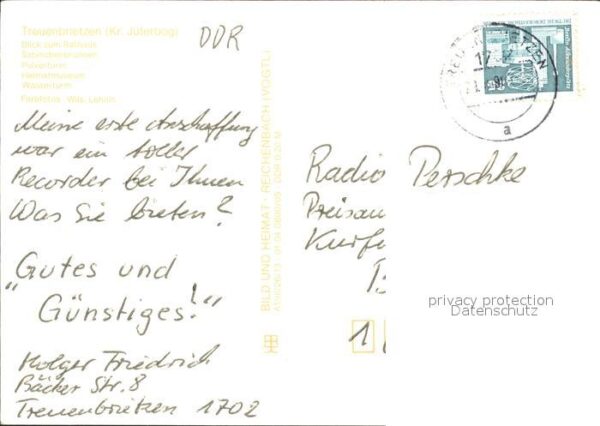 Treuenbrietzen (Kr. Jüterbog)
Blick zum Rathaus
Sabinchenbrunnen
Pulverturm
Heimatmuseum
Wasserturm
Farbfotos:
DDR
Meine erste Anschaffung
war ein toller
Recorder bei Ihnen
Was Sie bieten?
"Gutes und
Günstiges!"
Holger Friedrich
Bäcker Str. 8
Treuenbrietzen 1702
BILD UND HEIMAT · REICHENBACH (VOGTL)
DEUTSCHE DEMOKRATISCHE
TREUENBRIETZEN
a
Radio Perschke
Preisau
Kurfü
1
privacy protection
Datenschutz